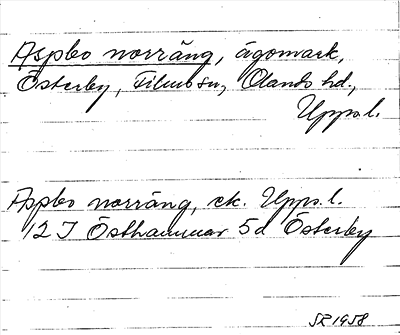 Aspbo norräng, ägomark,
Österby, Films sn, Olands hd,
Upps.l.
Aspbo norräng, ek. Upps.l.
12 I Östhammar 5d Österby
SR 1958